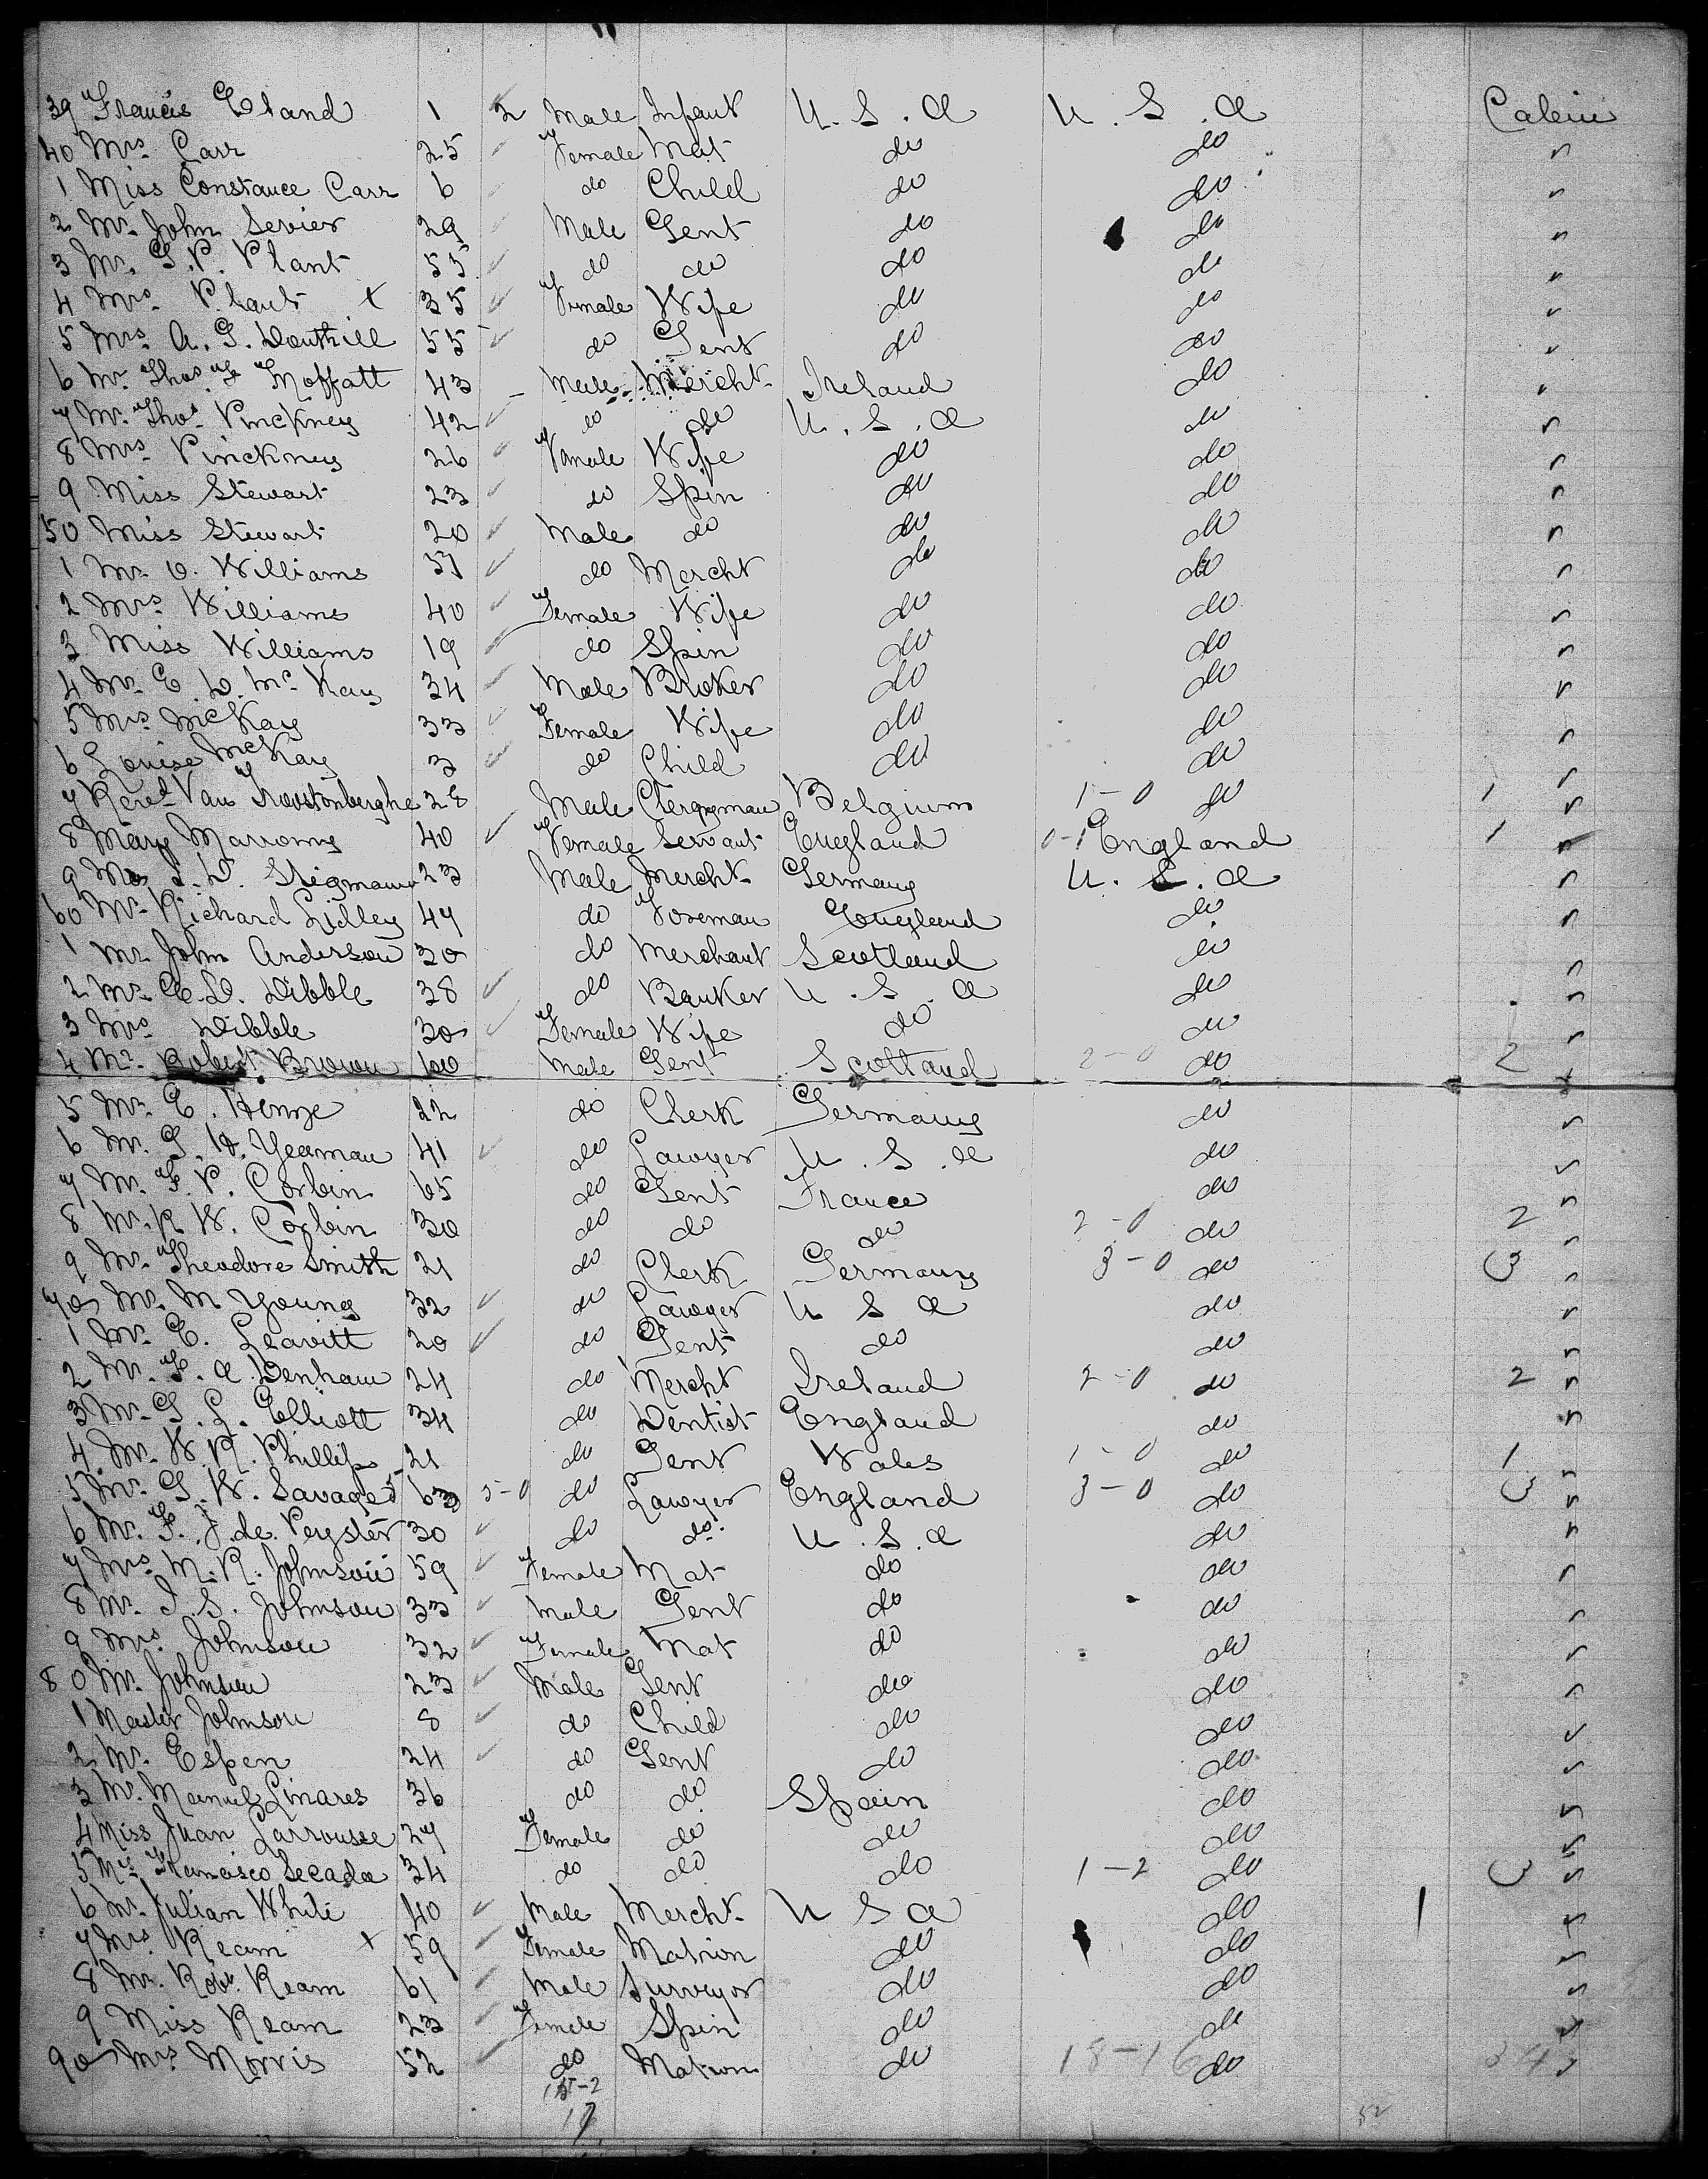 39 Francis Eland 1 2 Male Infant U. S. A U. S. A Cabin
40 Mrs. Carr 25 Female Mat do do
1 Miss Constance Carr 6 do Child do do
2 Mr. John Sevier 29 Male Gent do do
3 Mr. G. P. Plant 55 do do do do
4 Mrs. Plant x 35 Female Wife do do
5 Mrs. A. G. Douthill 55 do Gent do do
6 Mr. Thos. F Moffatt 43 Male Mercht Ireland do
7 Mr. Thos. Pinckney 42 do do U. S. A do
8 Mrs Pinckney 26 Female Wife do do
9 Miss Stewart 23 do Spin do do
50 Miss Stewart 20 Male do do do
1 Mr. O. Williams 57 do Mercht do do
2 Mrs Williams 40 Female Wife do do
3 Miss Williams 19 do Spin do do
4 Mr. E. D. Mc Kay 34 Male Broker do do
5 Mrs. McKay 33 Female Wife do do
6 Louise McKay 3 do Child do do
7 Revd. Van Troostonberghe 28 Male Clergyman Belgium 1-0 do 1
8 Mary Marrony 40 Female Servant England 0-1 England 1
9 Mr. L. D. Stegmann 23 Male Mercht Germany U. S. A
60 Mr. Richard Lidley 47 do Foreman England do
1 Mr John Anderson 30 do Merchant Scotland do
2 Mr. E. D. Dibble 38 do Banker U. S. A do
3 Mrs Dibble 30 Female Wife do do
4 Mr. Robert Brown 60 Male Gent Scotland 2-0 do 2
5 Mr. E. Henze 22 do Clerk Germany do
6 Mr. G. H. Yeaman 41 do Lawyer U. S. A do
7 Mr. F. P. Corbin 65 do Gent France do
8 Mr. R W. Corbin 30 do do do 2-0 do 2
9 Mr. Theodore Smith 21 do Clerk Germany 3-0 do 3
70 Mr. M Young 32 do Lawyer U S A do
1 Mr. E. Leavitt 20 do Gent do do
2 Mr. F. A Denham 24 do Mercht Ireland 2-0 do 2
3 Mr. G. L. Elliott 34 do Dentist England do
4 Mr. W. R. Phillips 21 do Gent Wales 1-0 do 1
5 Mr. G. W. Savage 63 5-0 do Lawyer England 3-0 do 3
6 Mr. F. J. de Peyster 30 do do. U. S. A do
7 Mrs. M. R. Johnson 59 Female Mat do do
8 Mr. I. S. Johnson 33 Male Gent do do
9 Mrs. Johnson 32 Female Mat do do
80 Mr. Johnson 23 Male Gent do do
1 Master Johnson 8 do Child do do
2 Mr. Espen 24 do Gent do do
3 Mr. Manuel Linares 36 do do Spain do
4 Miss Juan Larrousee 27 Female do do do
5 Francisco Secada 34 do do do 1-2 do 3
6 Mr. Julian White 40 Male Mercht U S A do
7 Mrs Ream x 59 Female Matron do do
8 Mr. Robt. Ream 61 Male Surveyor do do
9 Miss Ream 23 Female Spin do do
90 Mrs. Morris 52 do Matron do 18-16 do 34
15-2
17 52